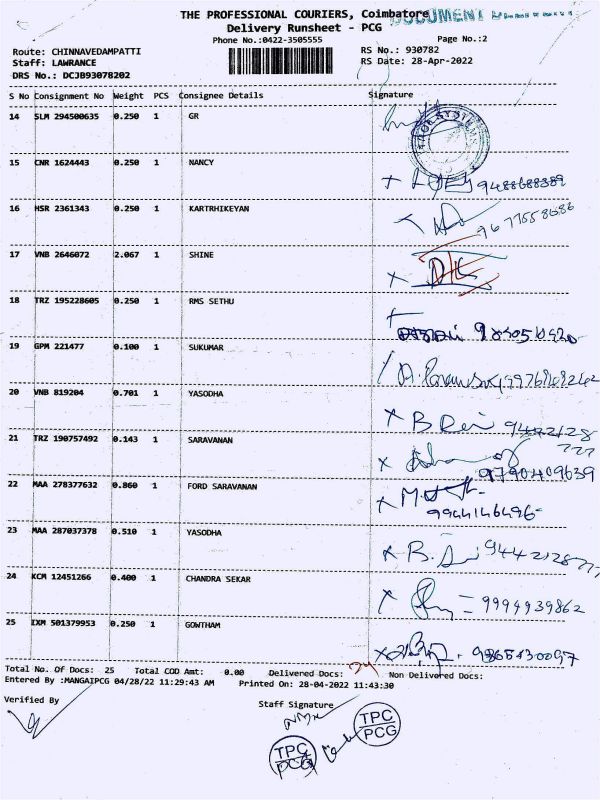 THE PROFESSIONAL COURIERS, Coimbatore
DOCUMENT
Delivery Runsheet - PCG
Phone No.:0422-3505555 Page No.:2
Route: CHINNAVEDAMPATTI RS No.: 930782
Staff: LAWRANCE RS Date: 28-Apr-2022
DRS No.: DCJB93078202
S No Consignment No Weight PCS Consignee Details Signature
14 SLM 294500635 0.250 1 GR
15 CNR 1624443 0.250 1 NANCY
9488688389
16 HSR 2361343 0.250 1 KARTRHIKEYAN
17 VNB 2646072 2.067 1 SHINE
18 TRZ 195228605 0.250 1 RMS SETHU
19 GPM 221477 0.100 1 SUKUMAR
20 VNB 819204 0.701 1 YASODHA
21 TRZ 190757492 0.143 1 SARAVANAN
9790409639
22 MAA 278377632 0.860 1 FORD SARAVANAN
9944146496
23 MAA 287037378 0.510 1 YASODHA
24 KCM 12451266 0.400 1 CHANDRA SEKAR
9994939862
25 IXM 501379953 0.250 1 GOWTHAM
9865430097
Total No. Of Docs: 25 Total COD Amt: 0.00 Delivered Docs: Non Delivored Docs:
Entered By :MANGAIPCG 04/28/22 11:29:43 AM Printed On: 28-04-2022 11:43:30
Verified By Staff Signature
TPC
PCG
TPC
PCG